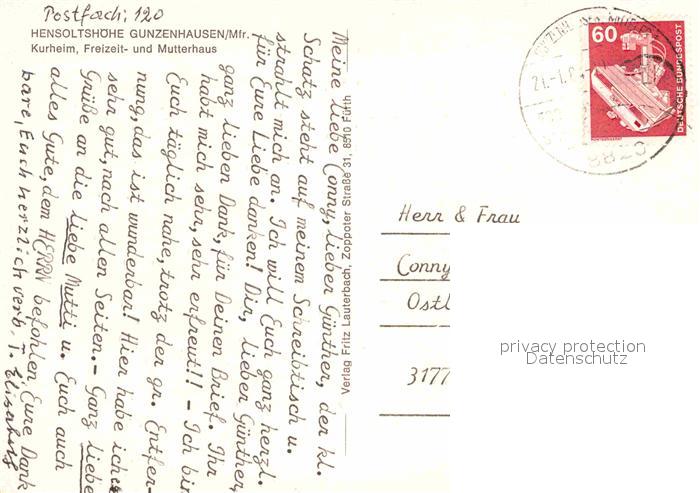 Postfach: 120
HENSOLTSHÖHE GUNZENHAUSEN/Mfr.
Kurheim, Freizeit- und Mutterhaus
Meine liebe Conny, lieber Günther, der kl.
Schatz steht auf meinem Schreibtisch u.
strahlt mich an. Ich will Euch ganz herzl.
für Eure Liebe danken! Dir, lieber Günther,
ganz lieben Dank, für Deinen Brief. Ihr
habt mich sehr, sehr erfreut!! - Ich bin
Euch täglich nahe, trotz der gr. Entfer-
nung, das ist wunderbar! Hier habe ich es
sehr gut, nach allen Seiten. - Ganz liebe
Grüße an die liebe Mutti u. Euch auch
alles Gute, dem HERRN befohlen, Eure Dank
bare, Euch herzlich verb. T. Elisabeth
Verlag Fritz Lauterbach, Zoppoter Straße 31, 8510 Fürth
60
DEUTSCHE BUNDESPOST
8820
Herr & Frau
Conny
Ostl
3177
privacy protection
Datenschutz